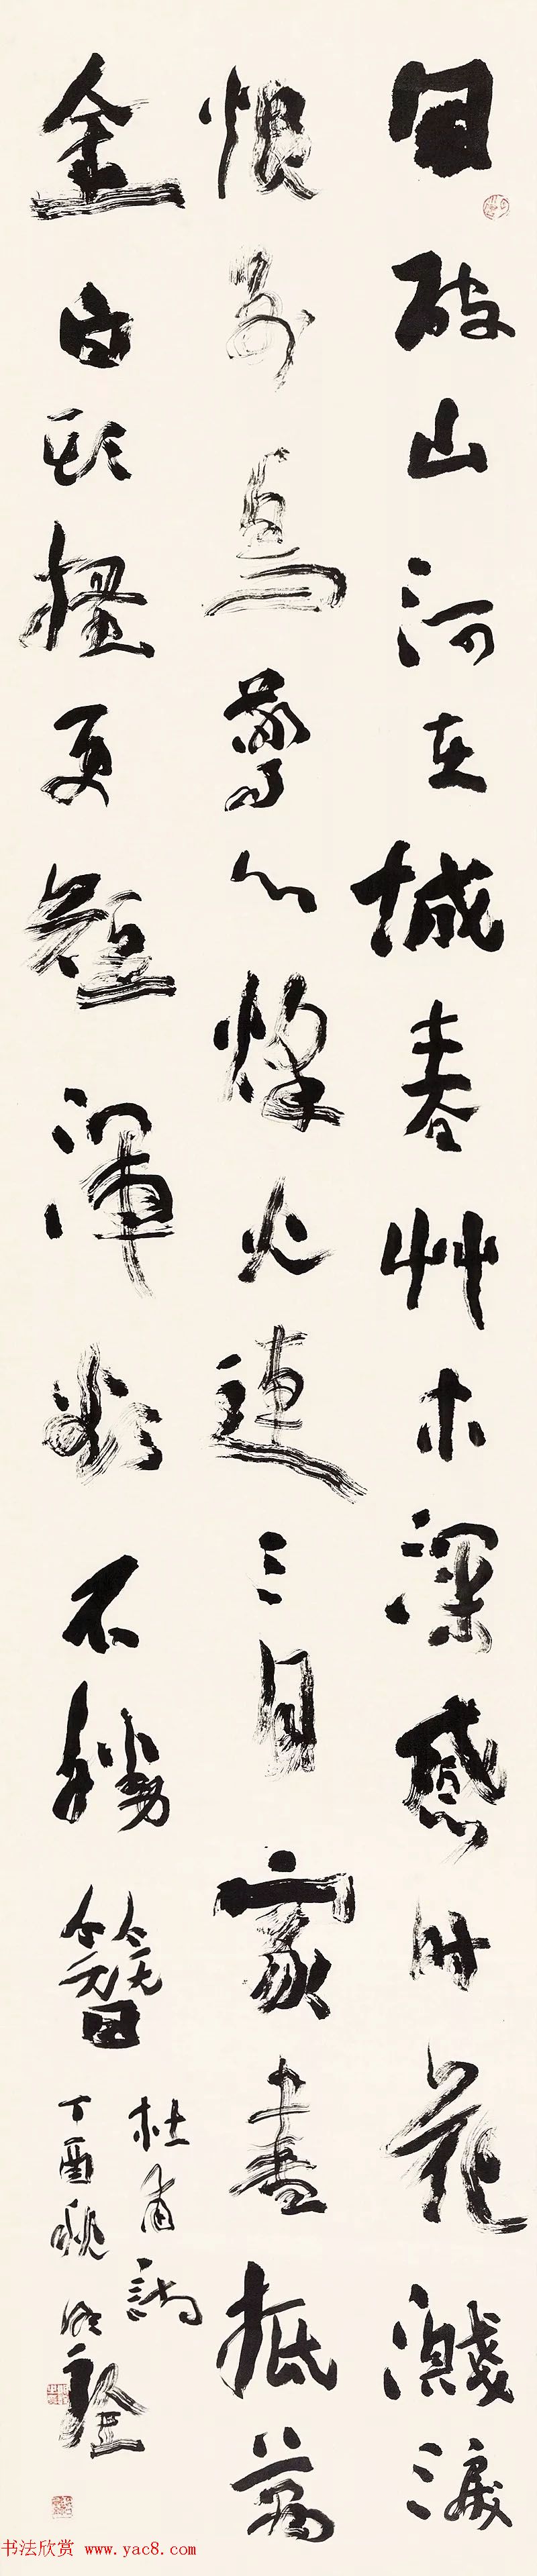 国破山河在城春艸木深感时花濺淚
恨别鳥驚心烽火連三月家書抵萬
金白頭搔更短渾欲不勝簪
杜甫詩
丁酉秋
书法欣赏 www.yac8.com